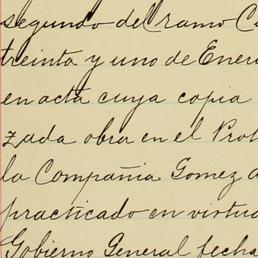 segundo del ramo C
treinta y uno de Ener
en acta cuya copia
zada obra en el Prot
la Compañia Gomez a
practicado en virtu
Gobierno General fecha